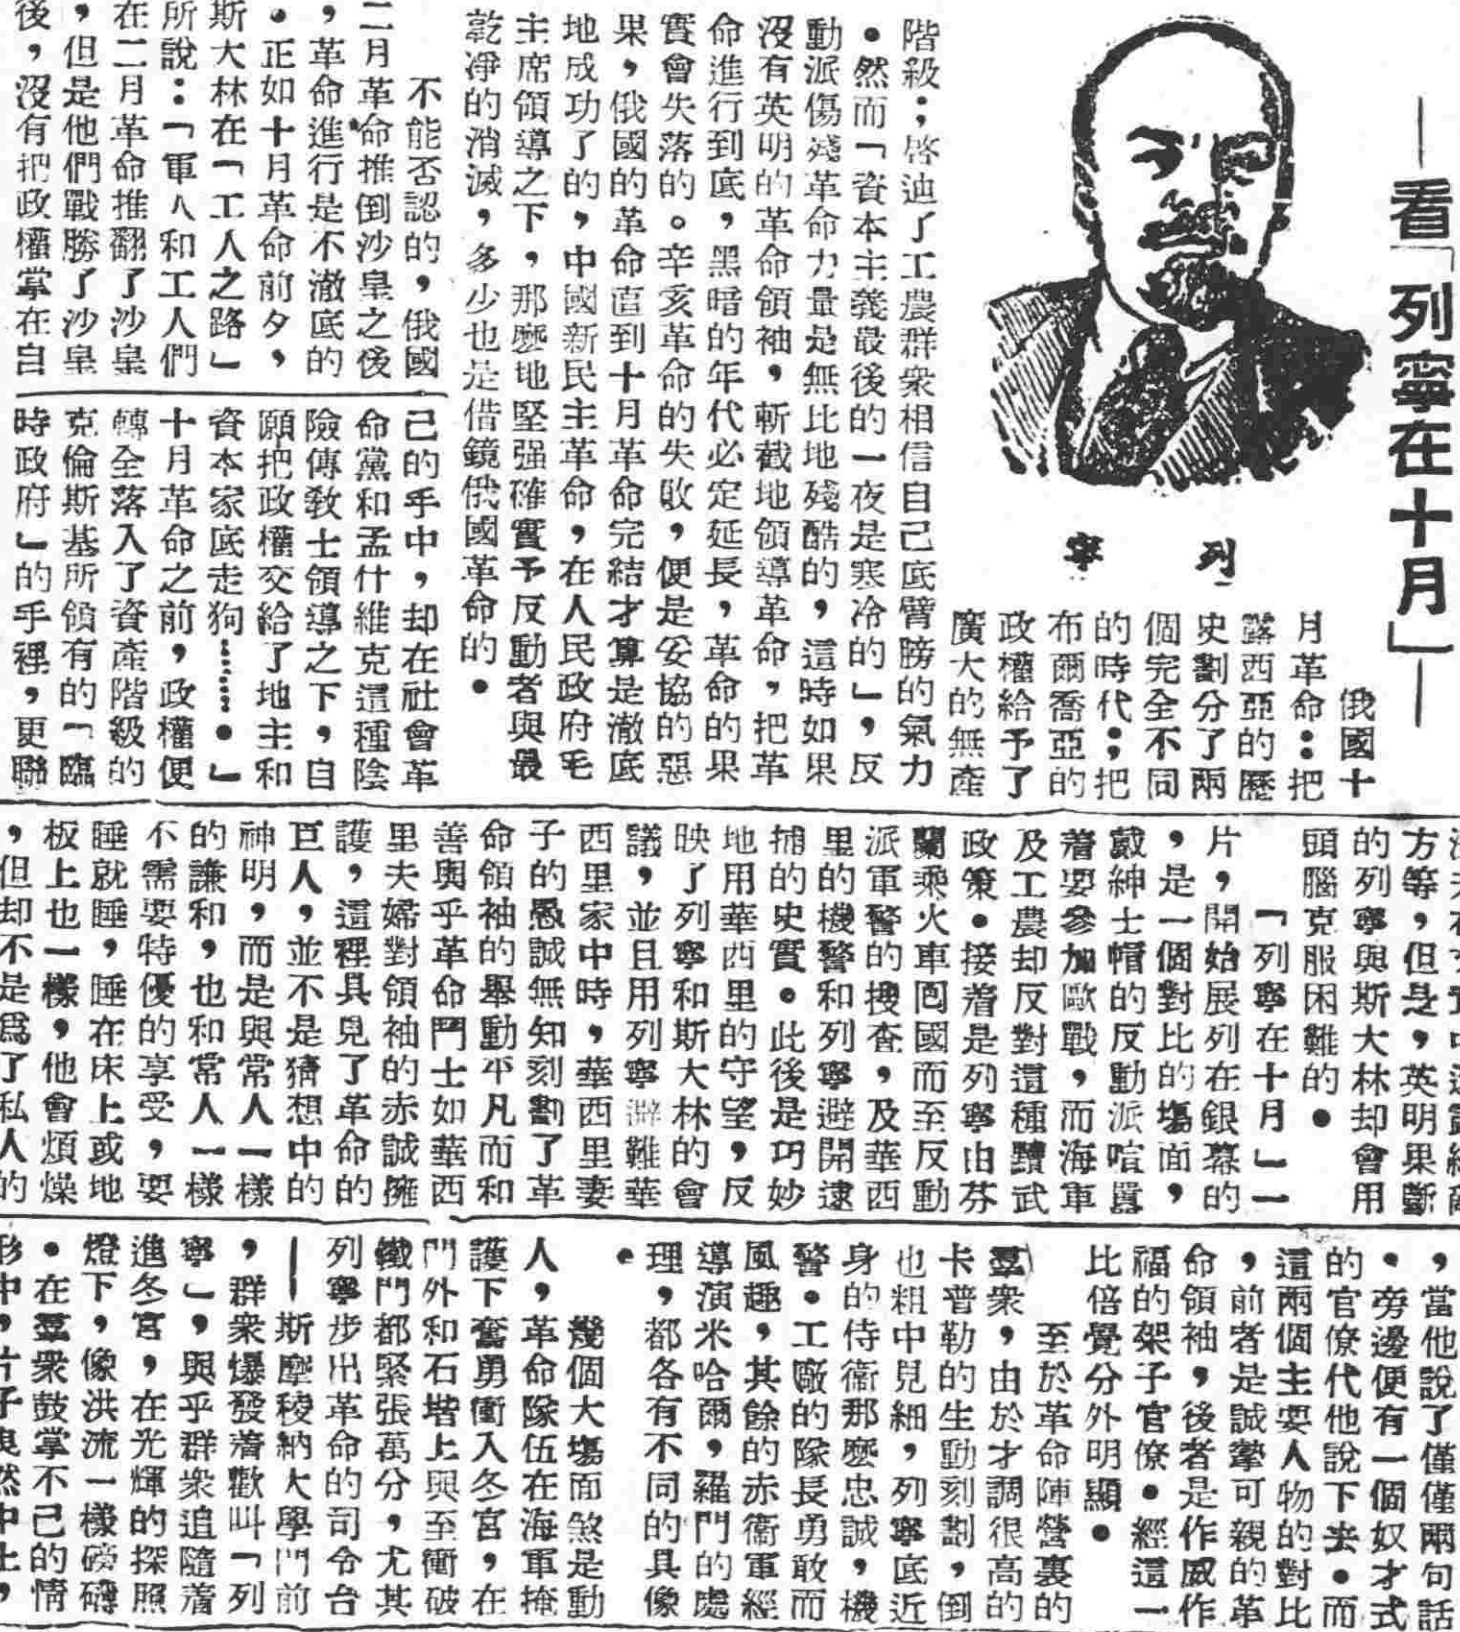 ——看「列寧在十月」——
列寧
俄國十
月革命：把
露西亞的歷
史劃分了兩
個完全不同
的時代；把
布爾喬亞的
政權給予了
廣大的無產
階級；啓迪了工農群衆相信自己底臂膀的氣力
。然而「資本主義最後的一夜是寒冷的」，反
動派傷殘革命力量是無比地殘酷的，這時如果
沒有英明的革命領袖，斬截地領導革命，把革
命進行到底，黑暗的年代必定延長，革命的果
實會失落的。辛亥革命的失敗，便是妥協的惡
果，俄國的革命直到十月革命完結才算是澈底
地成功了的，中國新民主革命，在人民政府毛
主席領導之下，那麼地堅强確實予反動者與最
乾凈的消滅，多少也是借鏡俄國革命的。
不能否認的，俄國
二月革命推倒沙皇之後
，革命進行是不澈底的
。正如十月革命前夕，
斯大林在「工人之路」
所說：「軍人和工人們
在二月革命推翻了沙皇
，但是他們戰勝了沙皇
後，沒有把政權掌在自
己的手中，却在社會革
命黨和孟什維克這種陰
險傳敎士領導之下，自
願把政權交給了地主和
資本家底走狗……。」
十月革命之前，政權便
轉全落入了資產階級的
克倫斯基所領有的「臨
時政府」的手裡，更聯
方等，但是，英明果斷
的列寧與斯大林却會用
頭腦克服困難的。
「列寧在十月」一
片，開始展列在銀幕的
，是一個對比的塲面，
戴紳士帽的反動派喧囂
着要參加歐戰，而海軍
及工農却反對這種黷武
政策。接着是列寧由芬
蘭乘火車囘國而至反動
派軍警的搜查，及華西
里的機警和列寧避開逮
捕的史實。此後是巧妙
地用華西里的守望，反
映了列寧和斯大林的會
議，並且用列寧避難華
西里家中時，華西里妻
子的愚誠無知刻劃了革
命領袖的舉動平凡而和
善與乎革命鬥士如華西
里夫婦對領袖的赤誠擁
護，這裡具見了革命的
巨人，並不是猜想中的
神明，而是與常人一樣
的謙和，也和常人一樣
不需要特優的享受，要
睡就睡，睡在床上或地
板上也一樣，他會煩燥
，但却不是爲了私人的
，當他說了僅僅兩句話
。旁邊便有一個奴才式
的官僚代他說下去。而
這兩個主要人物的對比
，前者是誠摯可親的革
命領袖，後者是作威作
福的架子官僚。經這一
比倍覺分外明顯。
至於革命陣營裏的
羣衆，由於才調很高的
卡普勒的生動刻劃，倒
也粗中見細，列寧底近
身的侍衞那麼忠誠，機
警。工廠的隊長勇敢而
風趣，其餘的赤衞軍經
導演米哈爾，羅門的處
理，都各有不同的具像
。
幾個大塲面煞是動
人，革命隊伍在海軍掩
護下奮勇衝入冬宮，在
門外和石堦上與至衝破
鐵門都緊張萬分，尤其
列寧步出革命的司令台
——斯麽稜納大學門前
，群衆爆發着歡叫「列
寧」，與乎群衆追隨着
進冬宮，在光輝的探照
燈下，像洪流一樣磅礴
。在羣衆鼓掌不已的情